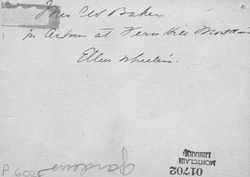 Mrs C W Baker
in Autumn at Fern Hill Montclair
Ellen Wheeler.
P 6025
gardens
MONTCLAIR
LIBRARY
01702